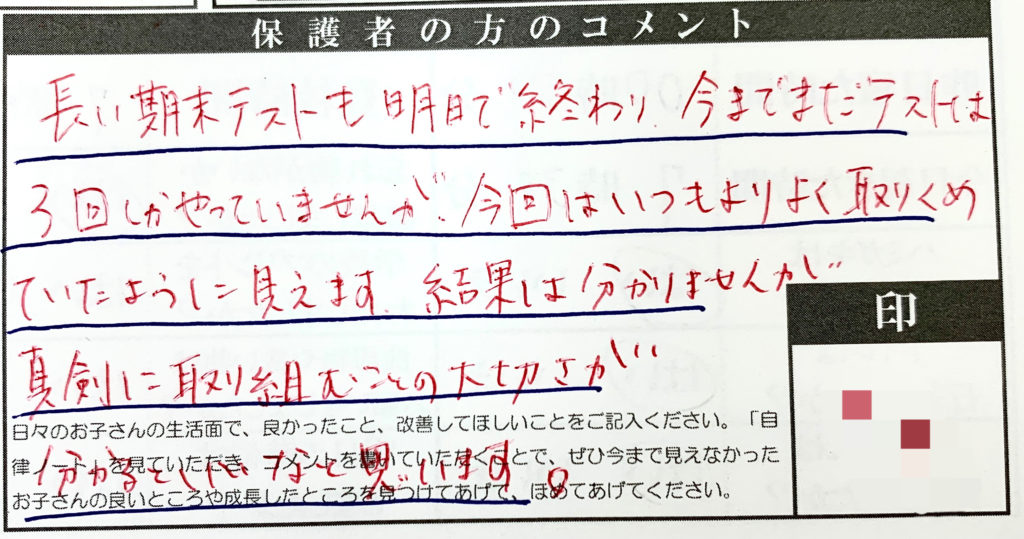 保護者の方のコメント
長い期末テストも明日で終わり、今までまだテストは
3回しかやっていませんが、今回はいつもよりよく取りくめ
ていたように見えます。結果は分かりませんが
印
真剣に取り組むことの大切さが
日々のお子さんの生活面で、良かったこと、改善してほしいことをご記入ください。「自
律ノート」を見ていただき、コメントを書いていただくことで、ぜひ今まで見えなかった
分かるといいなと思います。
お子さんの良いところや成長したところを見つけてあげて、ほめてあげてください。